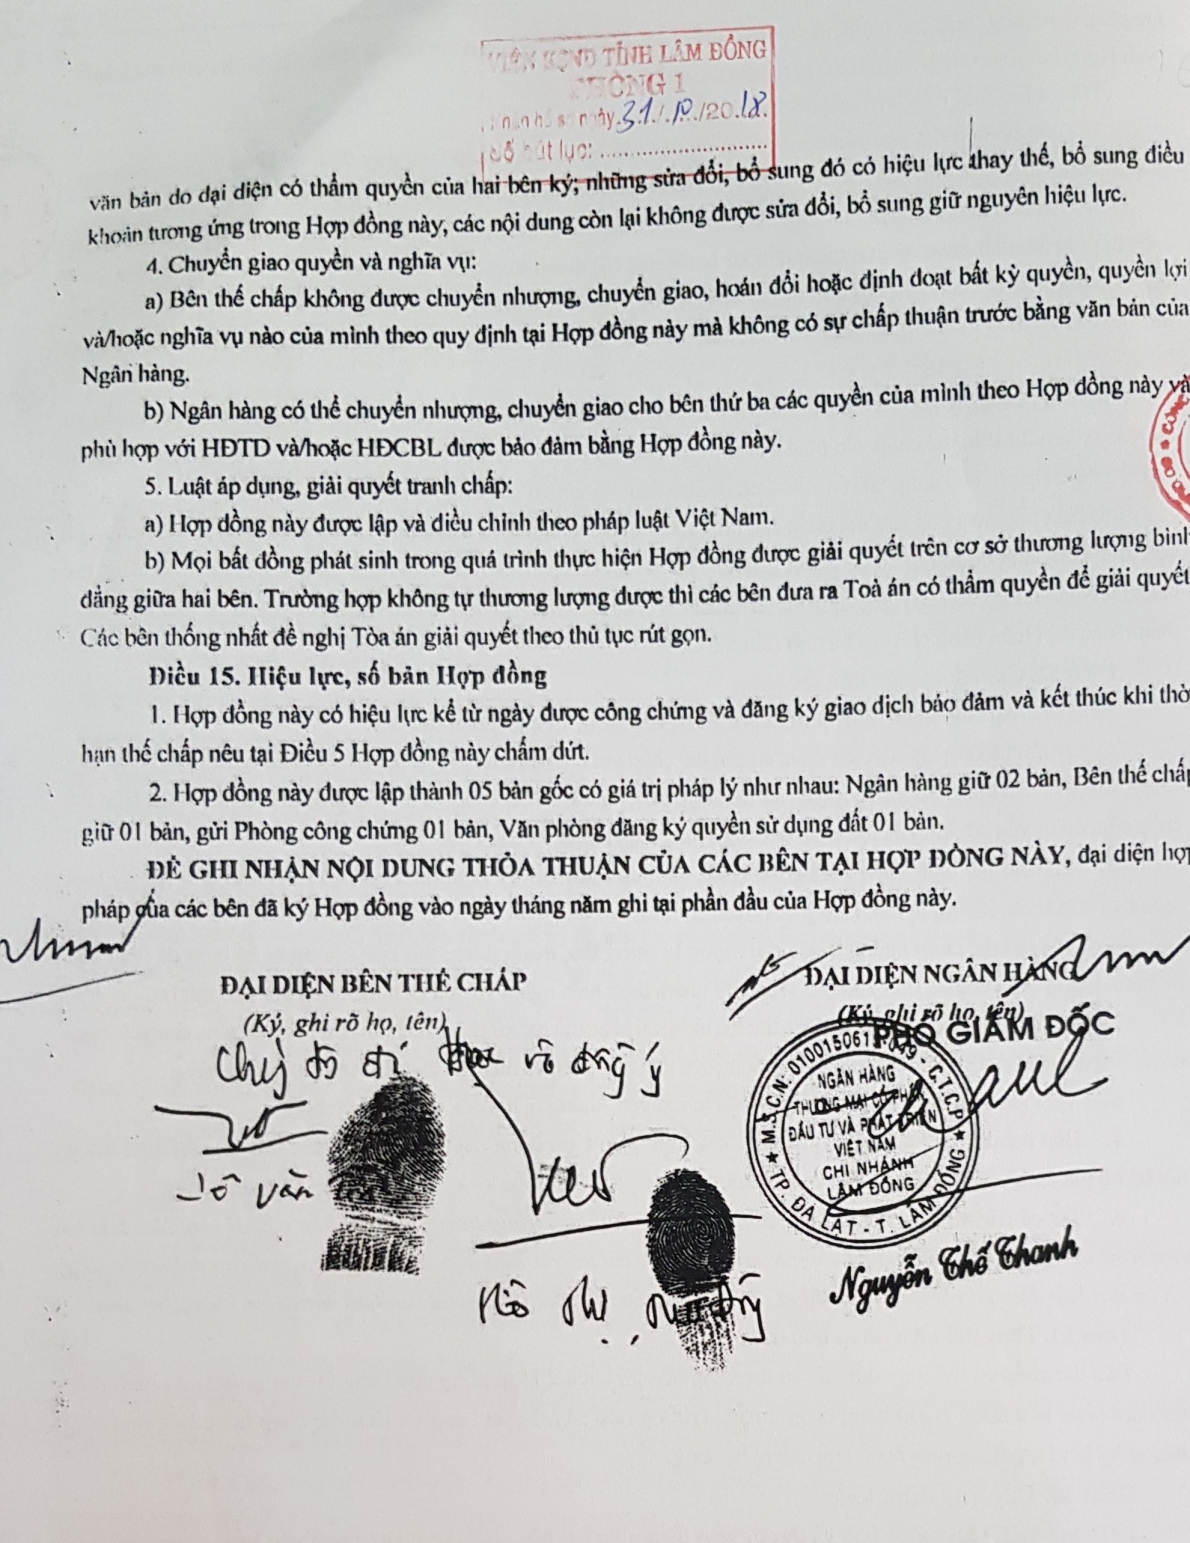 VIỆN KSND TỈNH LÂM ĐỒNG
PHÒNG 1
ngày 31/10/2018
Số bút lục: ........................
văn bản do đại diện có thẩm quyền của hai bên ký; những sửa đổi, bổ sung đó có hiệu lực thay thế, bổ sung điều
khoản tương ứng trong Hợp đồng này, các nội dung còn lại không được sửa đổi, bổ sung giữ nguyên hiệu lực.
4. Chuyển giao quyền và nghĩa vụ:
a) Bên thế chấp không được chuyển nhượng, chuyển giao, hoán đổi hoặc định đoạt bất kỳ quyền, quyền lợi
và/hoặc nghĩa vụ nào của mình theo quy định tại Hợp đồng này mà không có sự chấp thuận trước bằng văn bản của
Ngân hàng.
b) Ngân hàng có thể chuyển nhượng, chuyển giao cho bên thứ ba các quyền của mình theo Hợp đồng này và
phù hợp với HĐTD và/hoặc HĐCBL được bảo đảm bằng Hợp đồng này.
5. Luật áp dụng, giải quyết tranh chấp:
a) Hợp đồng này được lập và điều chỉnh theo pháp luật Việt Nam.
b) Mọi bất đồng phát sinh trong quá trình thực hiện Hợp đồng được giải quyết trên cơ sở thương lượng bình
đẳng giữa hai bên. Trường hợp không tự thương lượng được thì các bên đưa ra Toà án có thẩm quyền để giải quyết
Các bên thống nhất đề nghị Tòa án giải quyết theo thủ tục rút gọn.
Điều 15. Hiệu lực, số bản Hợp đồng
1. Hợp đồng này có hiệu lực kể từ ngày được công chứng và đăng ký giao dịch bảo đảm và kết thúc khi thờ
hạn thế chấp nêu tại Điều 5 Hợp đồng này chấm dứt.
2. Hợp đồng này được lập thành 05 bản gốc có giá trị pháp lý như nhau: Ngân hàng giữ 02 bản, Bên thế chấp
giữ 01 bản, gửi Phòng công chứng 01 bản, Văn phòng đăng ký quyền sử dụng đất 01 bản.
ĐỂ GHI NHẬN NỘI DUNG THỎA THUẬN CỦA CÁC BÊN TẠI HỢP ĐỒNG NÀY, đại diện hợp
pháp của các bên đã ký Hợp đồng vào ngày tháng năm ghi tại phần đầu của Hợp đồng này.
ĐẠI DIỆN BÊN THẾ CHẤP
(Ký, ghi rõ họ, tên)
đồng ý
Tô Văn
Thị
ĐẠI DIỆN NGÂN HÀNG
(Ký, ghi rõ họ, tên)
PHÓ GIÁM ĐỐC
NGÂN HÀNG
THƯƠNG MẠI CỔ PHẦN
ĐẦU TƯ VÀ PHÁT TRIỂN
VIỆT NAM
CHI NHÁNH
LÂM ĐỒNG
TP. ĐÀ LẠT - T. LÂM ĐỒNG
Nguyễn Thế Thanh